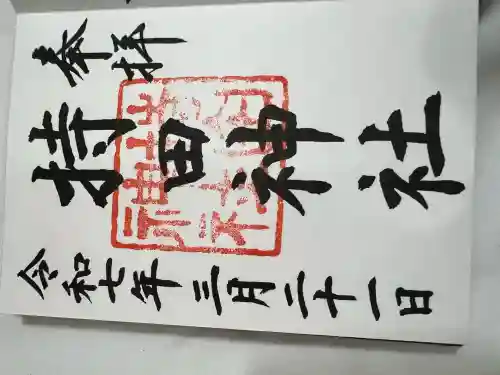 奉拝
持田神社
令和七年三月二十一日